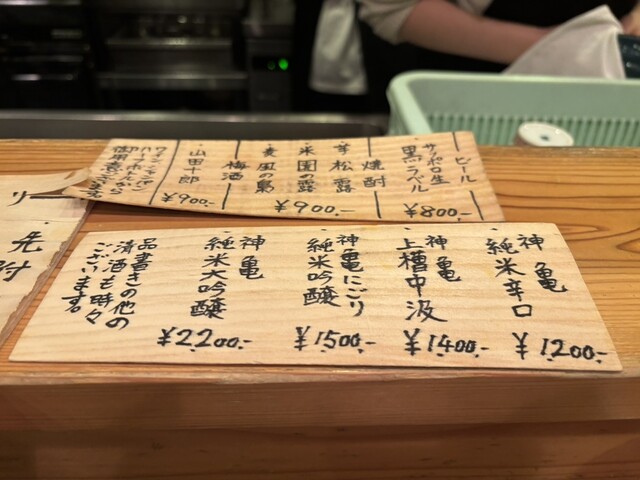 ビール
サッポロ生
黒ラベル
¥800-
焼酎
芋 松露
米 園の露
麦 風の梟
¥900-
梅酒
山田十郎
¥900-
御用意ございます
神亀
純米辛口
¥1200-
神亀
上槽中汲
¥1400-
神亀にごり
純米吟醸
¥1500-
神亀
純米大吟醸
¥2200-
品書きの他の
清酒も時々
ございます。
先付